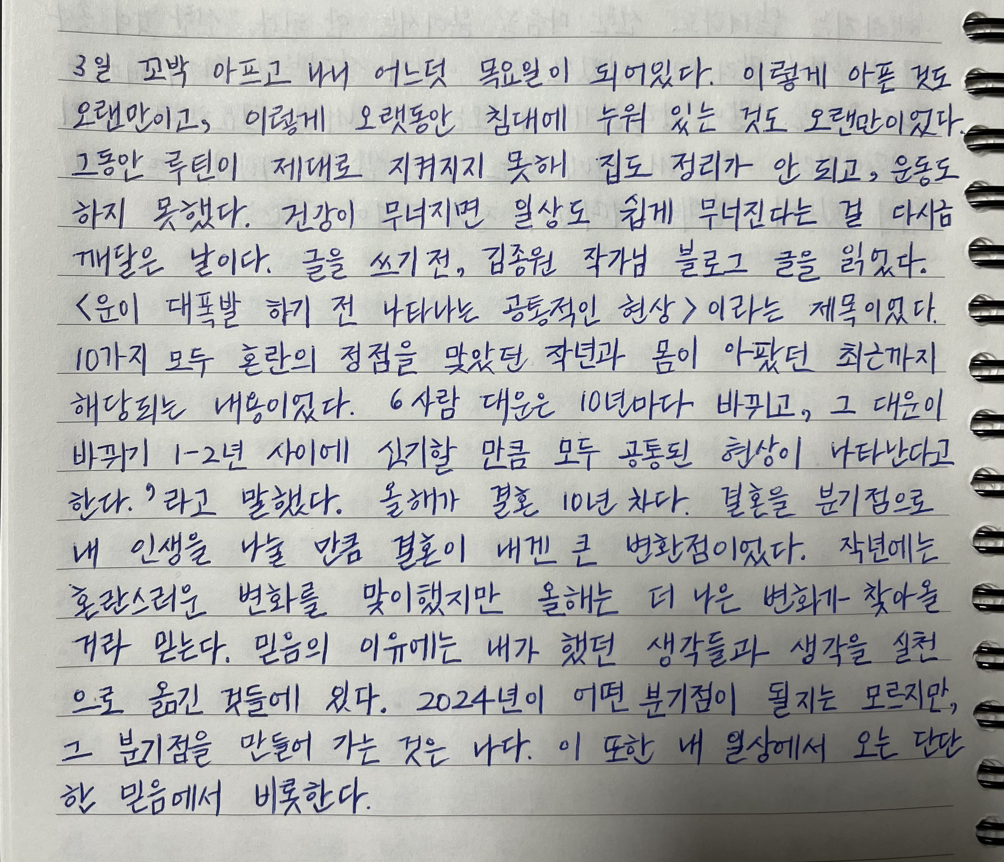 3일 꼬박 아프고 나니 어느덧 목요일이 되어있다. 이렇게 아픈 것도
오랜만이고, 이렇게 오랫동안 침대에 누워 있는 것도 오랜만이었다.
그동안 루틴이 제대로 지켜지지 못해 집도 정리가 안 되고, 운동도
하지 못했다. 건강이 무너지면 일상도 쉽게 무너진다는 걸 다시금
깨달은 날이다. 글을 쓰기 전, 김종원 작가님 블로그 글을 읽었다.
<운이 대폭발 하기 전 나타나는 공통적인 현상>이라는 제목이었다.
10가지 모두 혼란의 정점을 맞았던 작년과 몸이 아팠던 최근까지
해당되는 내용이었다. 6사람 대운은 10년마다 바뀌고, 그 대운이
바뀌기 1-2년 사이에 신기할 만큼 모두 공통된 현상이 나타난다고
한다.'라고 말했다. 올해가 결혼 10년 차다. 결혼을 분기점으로
내 인생을 나눌 만큼 결혼이 내겐 큰 변환점이었다. 작년에는
혼란스러운 변화를 맞이했지만 올해는 더 나은 변화가 찾아올
거라 믿는다. 믿음의 이유에는 내가 했던 생각들과 생각을 실천
으로 옮긴 것들에 있다. 2024년이 어떤 분기점이 될지는 모르지만,
그 분기점을 만들어 가는 것은 나다. 이 또한 내 일상에서 오는 단단
한 믿음에서 비롯한다.